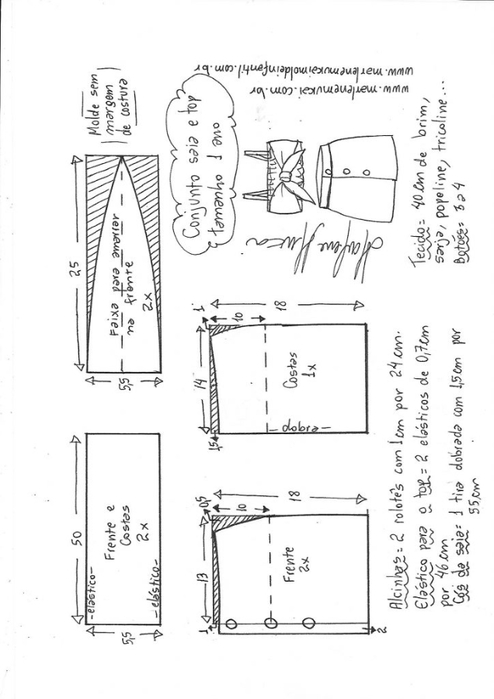 www.marlenemukaimoldeinfantil.com.br
www.marlenemukai.com.br
Molde sem
margem
de costura
Conjunto saia e top
tamanho 1 ano
Marlene Mukai
25
5,5
Faixa para amarrar
na frente
2x
50
5,5
-elástico-
Frente e
Costas
2x
-elástico-
14
1
10
18
1,5
Costas
1x
-dobra-
13
0,5
10
18
1
Frente
2x
2
Tecido= 40cm de brim,
sarja, popeline, tricoline...
Botões= 3 a 4
Alcinhas= 2 rolotês com 1cm por 24cm.
Elástico para o top= 2 elásticos de 0,7cm
por 46cm
Cós da saia= 1 tira dobrada com 1,5cm por
55,cm